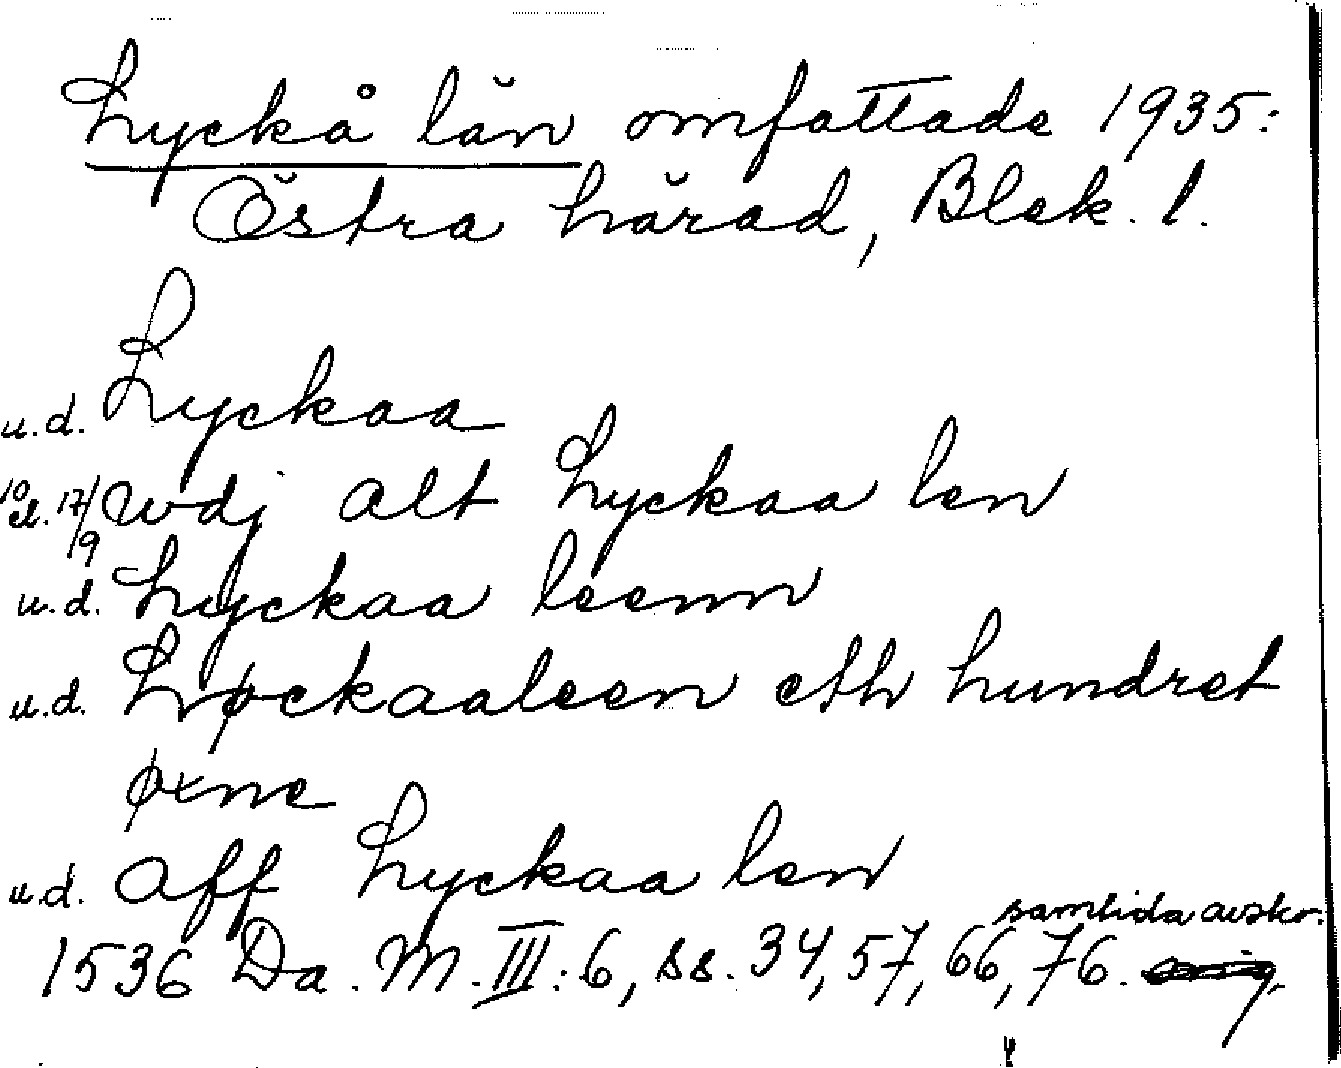 Lyckå län omfattade 1935:
Östra härad, Blek. l.
u.d. Lyckaa
10 el. 17/9 wdj alt Lyckaa len
u.d. Lyckaa leenn
u.d. Løckaaleen eth hundret
øxne
u.d. aff Lyckaa len
samtida avskr.
1536 Da. M. III:6, ss. 34, 57, 66, 76.